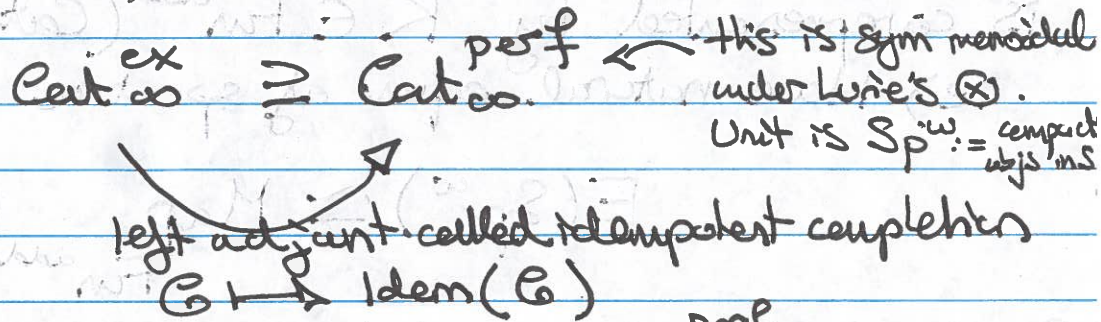 Cat^{ex}_∞ ⊇ Cat^{perf}_∞. ← this is sym monoidal
under Lurie's ⊗.
Unit is Sp^ω := compact
objs in S
left adjoint called idempotent completion
C ↦ Idem(C)